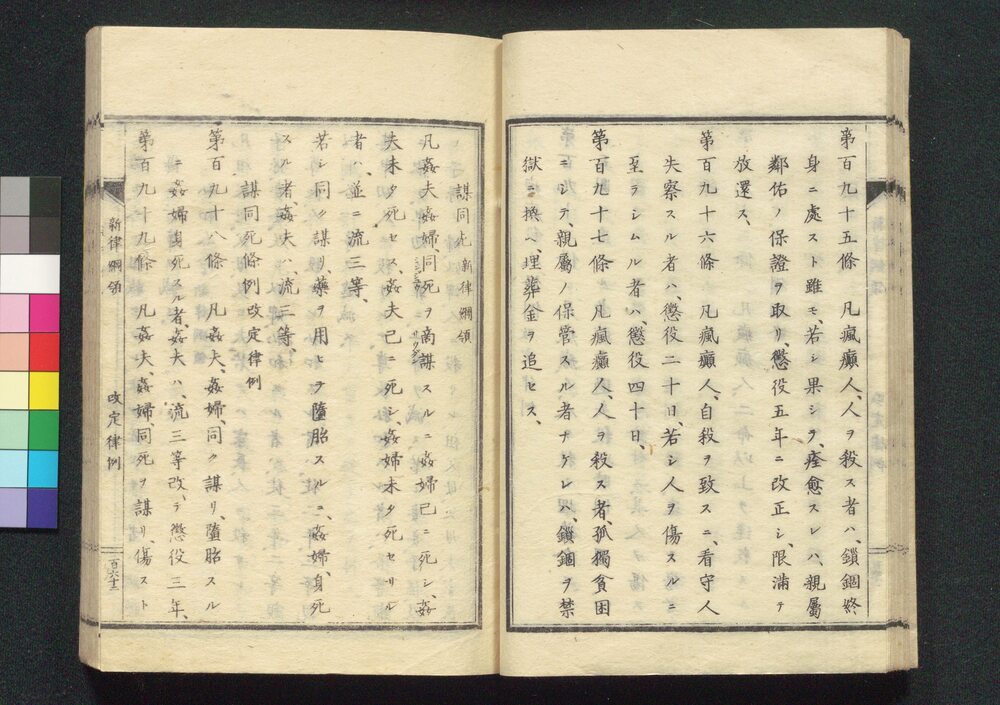 第百九十五條　凡瘋癲人、人ヲ殺ス者ハ、鎖錮終
身ニ處スト雖モ若シ果シテ、痊愈スレハ、親屬
鄰佑ノ保證ヲ取リ、懲役五年ニ改正シ、限滿テ
放還ス、
第百九十六條　凡瘋癲人、自殺ヲ致スニ、看守人
失察スル者ハ、懲役二十日、若シ人ヲ傷スルニ
至ラシムル者ハ、懲役四十日、
第百九十七條　凡瘋癲人、人ヲ殺ス者、孤獨貧困
ニシテ、親屬ノ保管スル者ナケレハ、鎖錮ヲ禁
獄ニ換ヘ、埋葬金ヲ追セス、
謀同死　新律綱領
凡姦夫姦婦同死ヲ商謀スルニ姦婦已ニ死シ、姦
夫未タ死セス、姦夫已ニ死シ、姦婦未タ死セサル
者ハ、並ニ流三等、
若シ同ク謀リ藥ヲ用ヒヲ墮胎スルニ、姦婦、身死
スル者、姦夫ハ流三等、
謀同死條例　改定律例
第百九十八條　凡姦夫、姦婦、同ク謀リ、墮胎スル
ニ姦婦身死スル者、姦夫ハ、流三等改、テ懲役三年、
第百九十九條　凡姦夫、姦婦、同死ヲ謀リ、傷スト
新律綱領
改定律例
百六十三